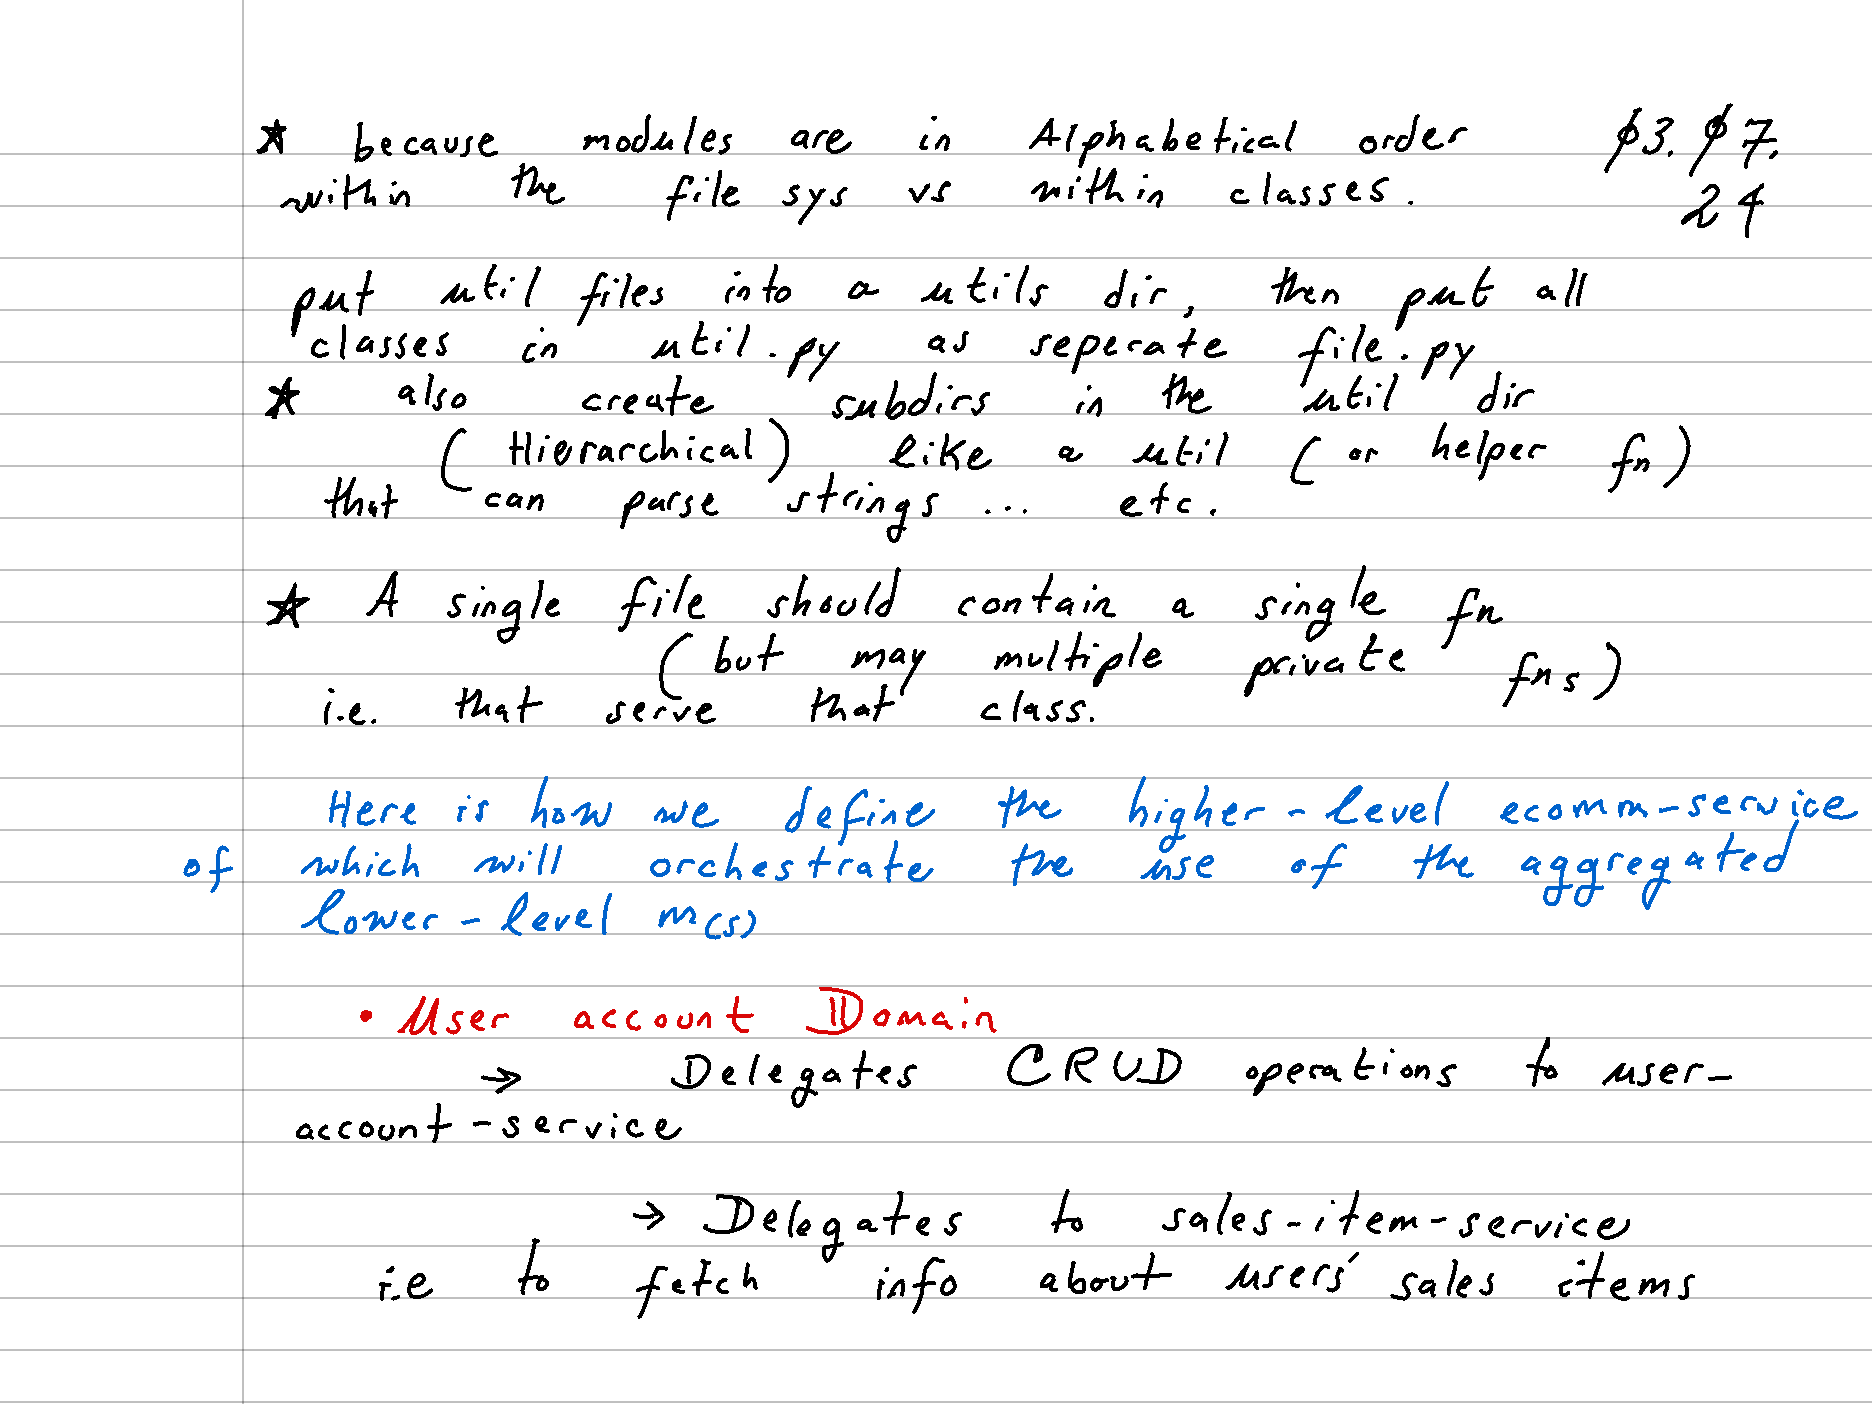 ★ because modules are in Alphabetical order 03.07.
within the file sys vs within classes. 24
put util files into a utils dir, then put all
classes in util.py as seperate file.py
★ also create subdirs in the util dir
(Hierarchical) like a util (or helper fn)
that can parse strings ... etc.
★ A single file should contain a single fn
(but may multiple private fns)
i.e. that serve that class.
Here is how we define the higher-level ecomm-service
of which will orchestrate the use of the aggregated
lower-level m(s)
• User account Domain
→ Delegates CRUD operations to user-
account-service
→ Delegates to sales-item-service
i.e to fetch info about users' sales items